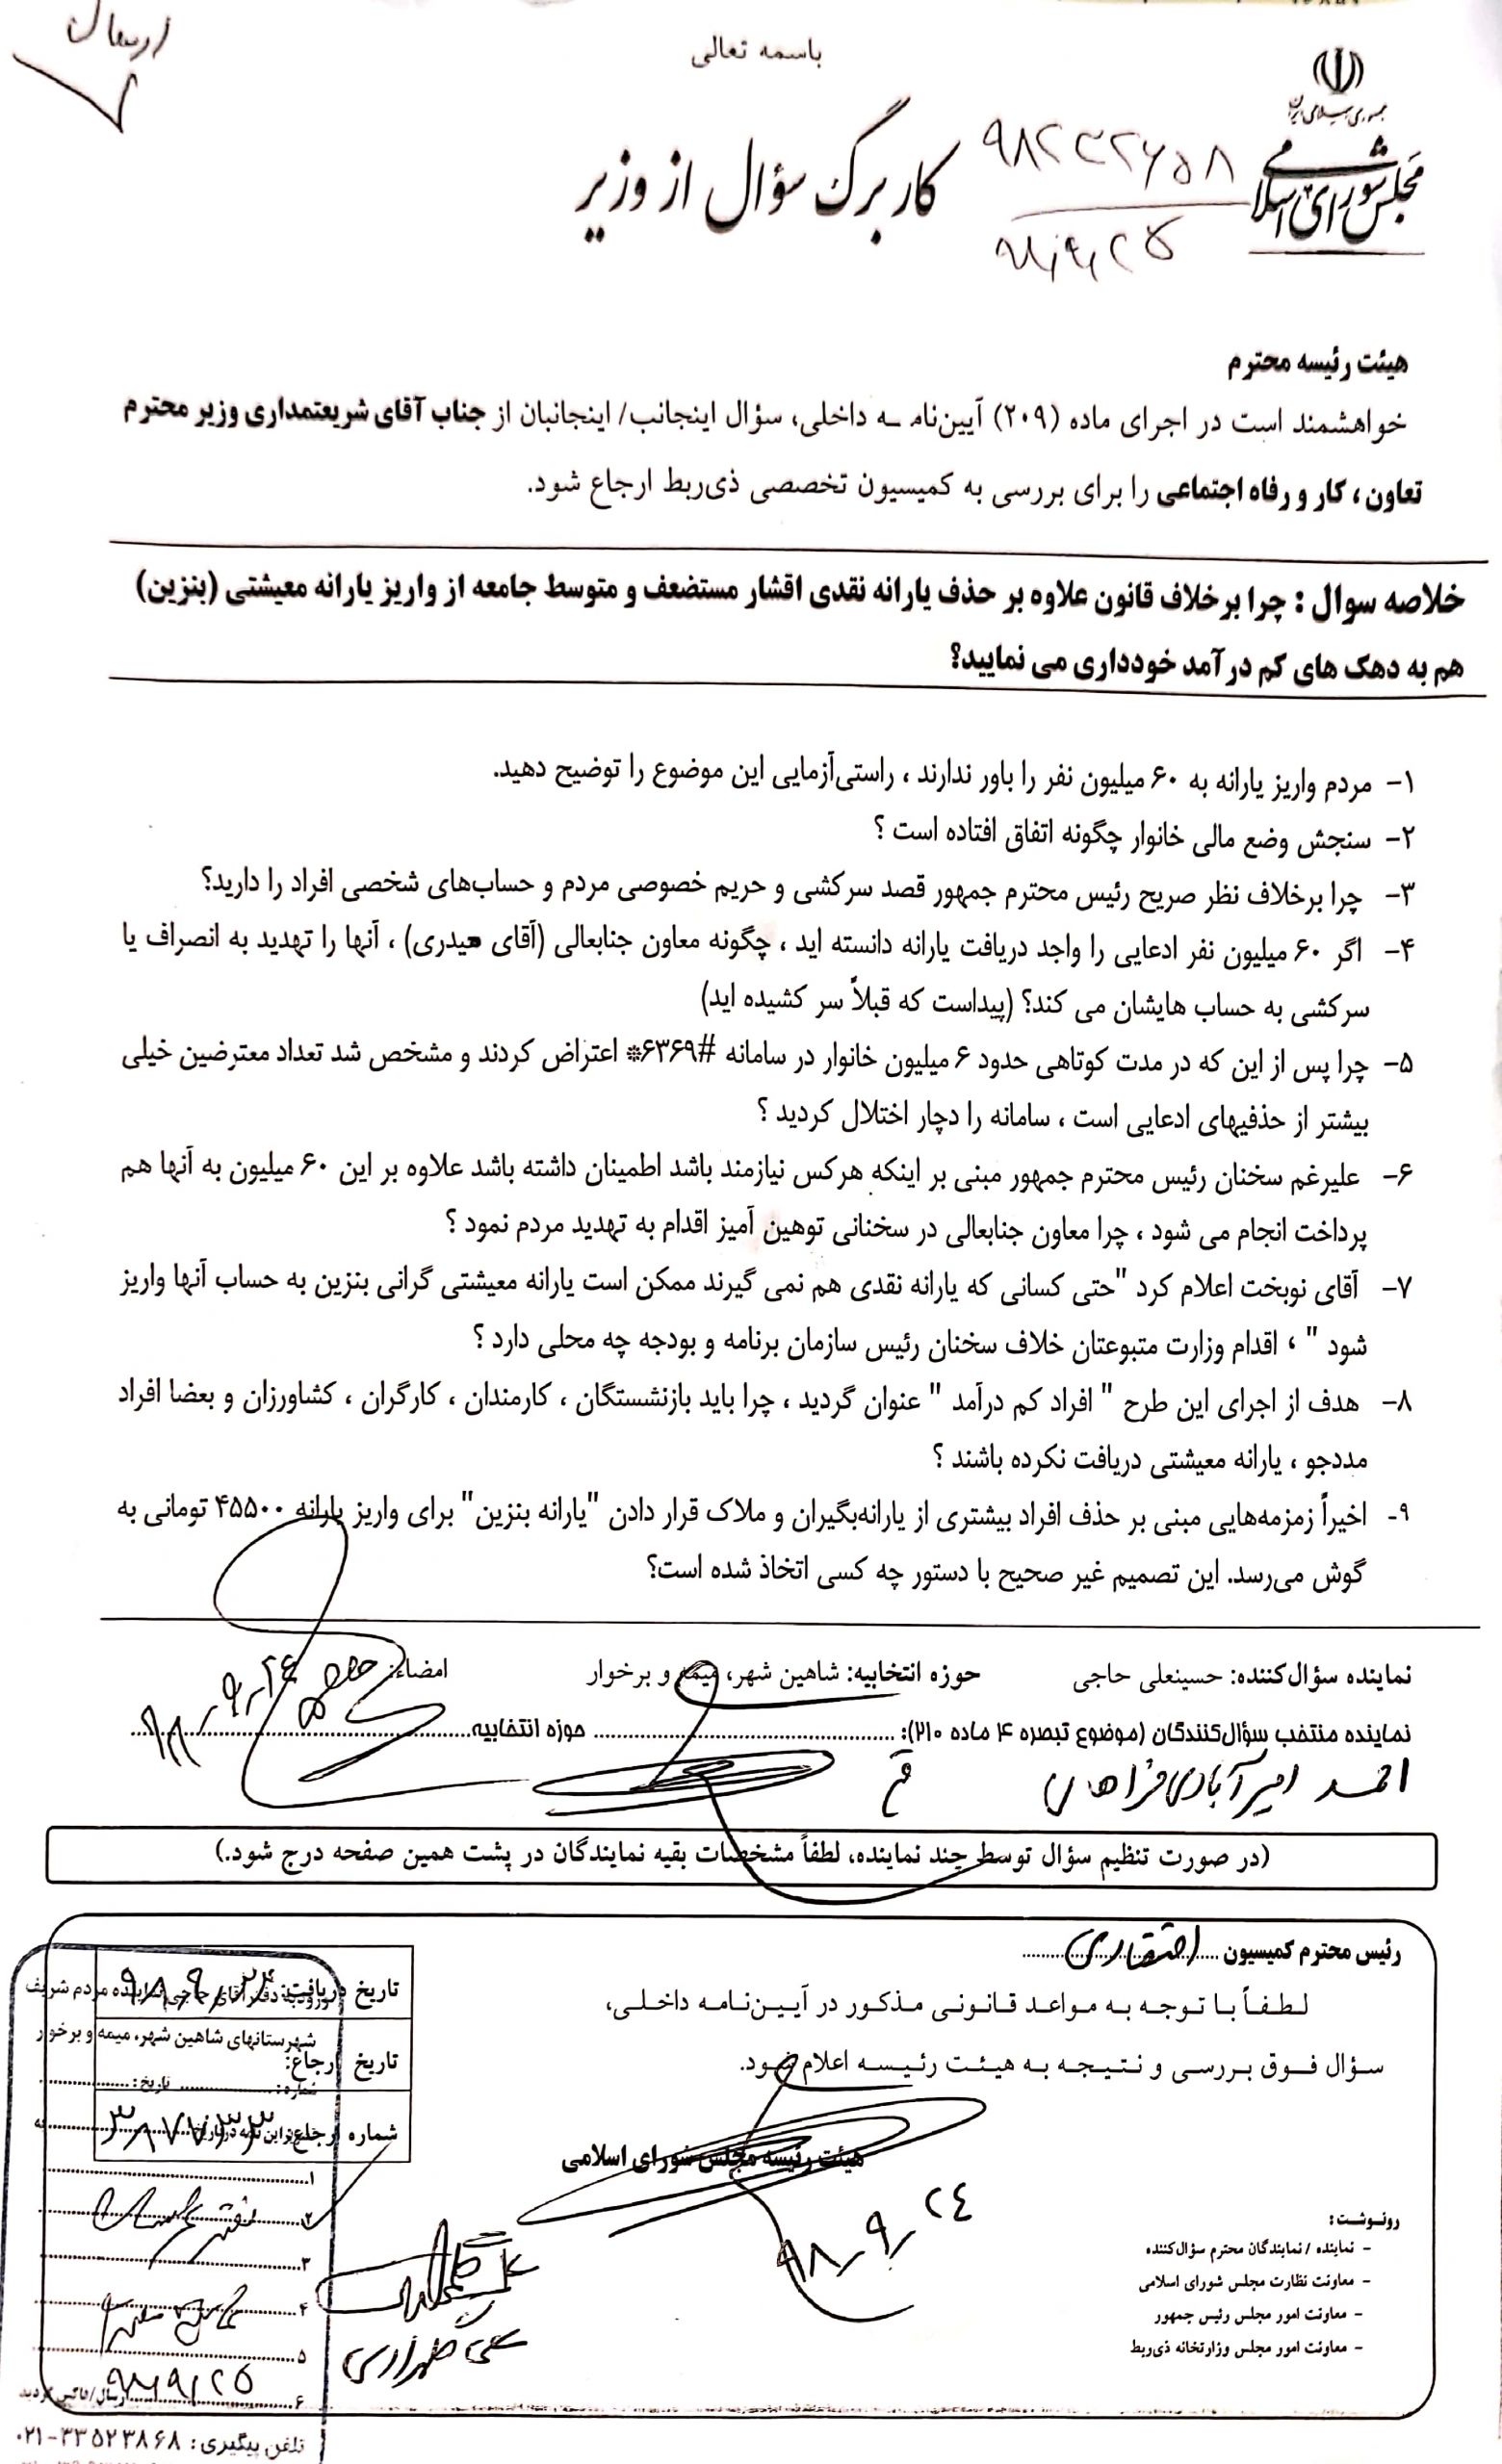 ارسال
باسمه تعالی
جمهوری اسلامی ایران
مجلس شورای اسلامی
۹۸۲۳۲۶۵۸
۹۸/۹/۲۵
کاربرگ سؤال از وزیر
هیئت رئیسه محترم
خواهشمند است در اجرای ماده (۲۰۹) آیین‌نامه داخلی، سؤال اینجانب/ اینجانبان از جناب آقای شریعتمداری وزیر محترم
تعاون، کار و رفاه اجتماعی را برای بررسی به کمیسیون تخصصی ذی‌ربط ارجاع شود.
خلاصه سوال : چرا برخلاف قانون علاوه بر حذف یارانه نقدی اقشار مستضعف و متوسط جامعه از واریز یارانه معیشتی (بنزین)
هم به دهک های کم درآمد خودداری می نمایید؟
۱- مردم واریز یارانه به ۶۰ میلیون نفر را باور ندارند ، راستی‌آزمایی این موضوع را توضیح دهید.
۲- سنجش وضع مالی خانوار چگونه اتفاق افتاده است ؟
۳- چرا برخلاف نظر صریح رئیس محترم جمهور قصد سرکشی و حریم خصوصی مردم و حساب‌های شخصی افراد را دارید؟
۴- اگر ۶۰ میلیون نفر ادعایی را واجد دریافت یارانه دانسته اید ، چگونه معاون جنابعالی (آقای میدری) ، آنها را تهدید به انصراف یا
سرکشی به حساب هایشان می کند؟ (پیداست که قبلاً سر کشیده اید)
۵- چرا پس از این که در مدت کوتاهی حدود ۶ میلیون خانوار در سامانه #۶۳۶۹* اعتراض کردند و مشخص شد تعداد معترضین خیلی
بیشتر از حذفیهای ادعایی است ، سامانه را دچار اختلال کردید ؟
۶- علیرغم سخنان رئیس محترم جمهور مبنی بر اینکه هرکس نیازمند باشد اطمینان داشته باشد علاوه بر این ۶۰ میلیون به آنها هم
پرداخت انجام می شود ، چرا معاون جنابعالی در سخنانی توهین آمیز اقدام به تهدید مردم نمود ؟
۷- آقای نوبخت اعلام کرد "حتی کسانی که یارانه نقدی هم نمی گیرند ممکن است یارانه معیشتی گرانی بنزین به حساب آنها واریز
شود " ، اقدام وزارت متبوعتان خلاف سخنان رئیس سازمان برنامه و بودجه چه محلی دارد ؟
۸- هدف از اجرای این طرح " افراد کم درآمد " عنوان گردید ، چرا باید بازنشستگان ، کارمندان ، کارگران ، کشاورزان و بعضا افراد
مددجو ، یارانه معیشتی دریافت نکرده باشند ؟
۹- اخیراً زمزمه‌هایی مبنی بر حذف افراد بیشتری از یارانه‌بگیران و ملاک قرار دادن "یارانه بنزین" برای واریز یارانه ۴۵۵۰۰ تومانی به
گوش می‌رسد. این تصمیم غیر صحیح با دستور چه کسی اتخاذ شده است؟
نماینده سؤال‌کننده: حسینعلی حاجی حوزه انتخابیه: شاهین شهر، میمه و برخوار امضاء:
۹۸/۹/۲۴
نماینده منتخب سؤال‌کنندگان (موضوع تبصره ۴ ماده ۲۱۰): حوزه انتخابیه
احمد امیرآبادی فراهانی قم
(در صورت تنظیم سؤال توسط چند نماینده، لطفاً مشخصات بقیه نمایندگان در پشت همین صفحه درج شود.)
رئیس محترم کمیسیون اقتصادی
لطفاً با توجه به مواعد قانونی مذکور در آیین‌نامه داخلی،
سؤال فوق بررسی و نتیجه به هیئت رئیسه اعلام شود.
هیئت رئیسه مجلس شورای اسلامی
۹۸/۹/۲۴
تاریخ دریافت: ۹۸/۹/۲۴
تاریخ ارجاع:
شماره ارجاع:
ورود به دفتر آقای حاجی نماینده مردم شریف
شهرستانهای شاهین شهر، میمه و برخوار
شماره: تاریخ:
۱
۲
۳
۴
۵
۹۸/۹/۲۵
۶ ارسال/فاکس گردید
تلفن پیگیری: ۳۳۵۲۳۸۶۸-۰۲۱
رونوشت:
- نماینده / نمایندگان محترم سؤال‌کننده
- معاونت نظارت مجلس شورای اسلامی
- معاونت امور مجلس رئیس جمهور
- معاونت امور مجلس وزارتخانه ذی‌ربط